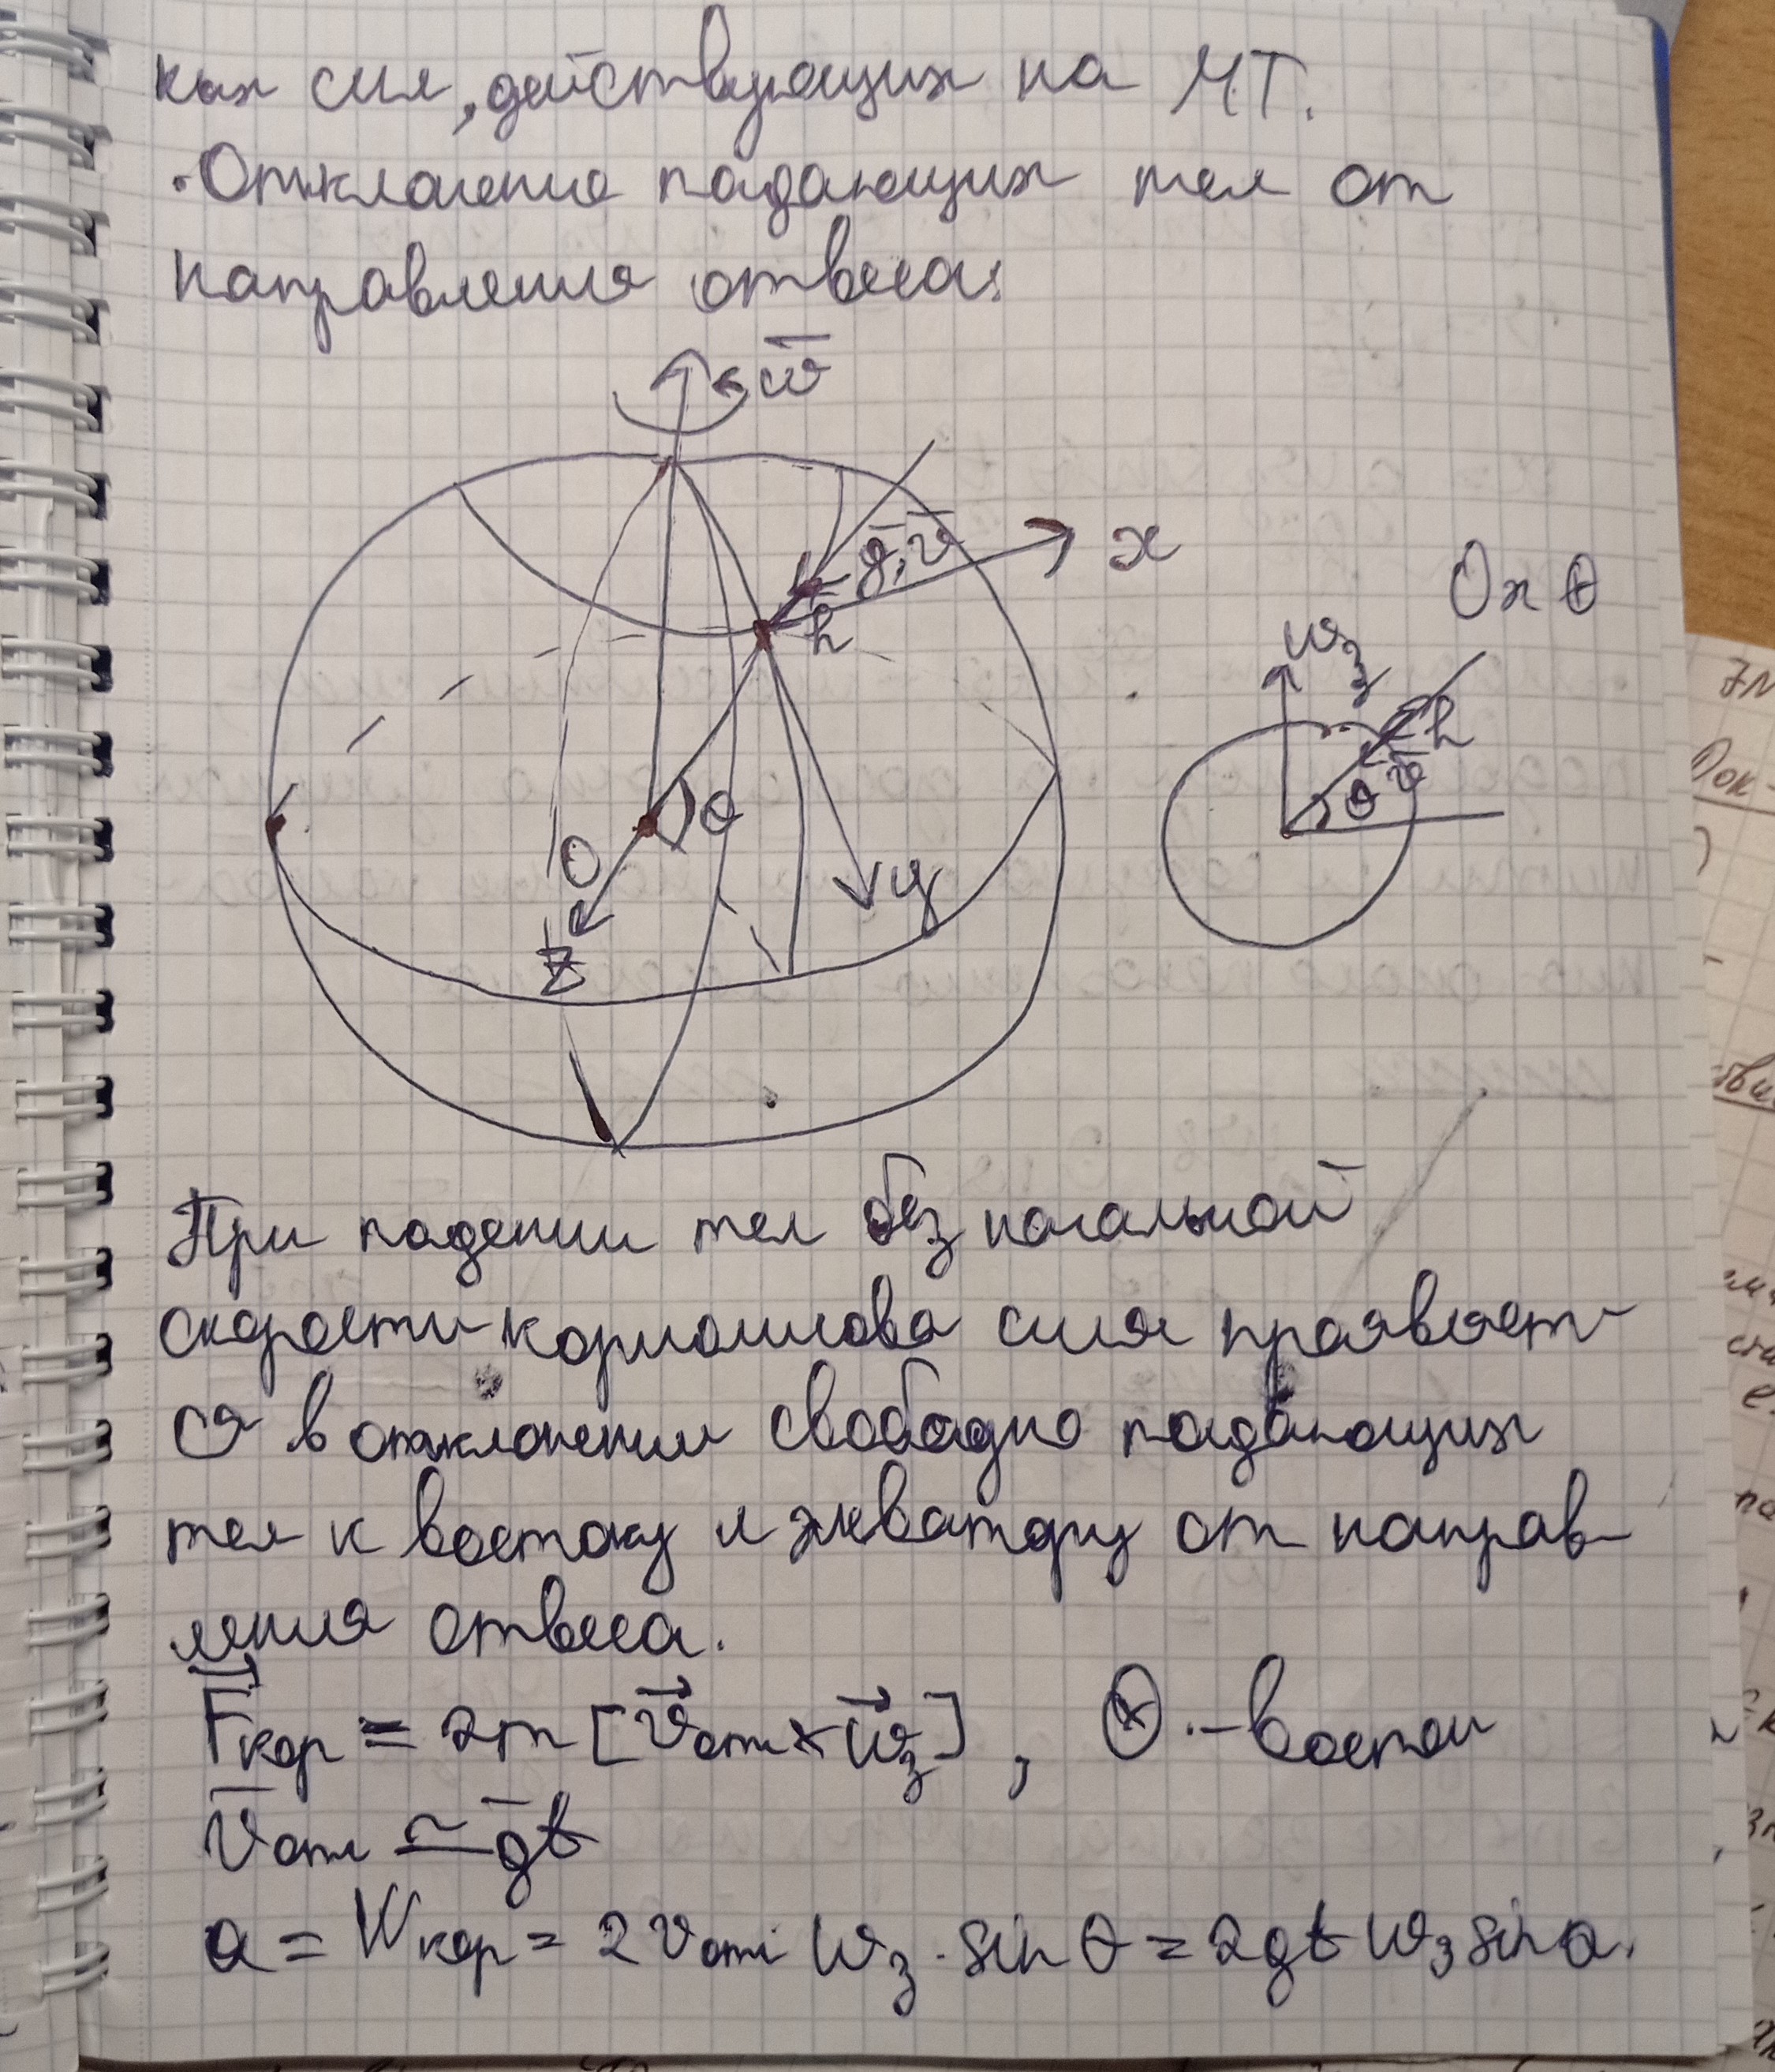 ках сил, действующих на МТ.
• Отклонение падающих тел от
направления отвеса:
ω̄
ḡ, v̄
x
h
Ox ⊕
ω₃
h
v̄
θ
θ
O
y
z
При падении тел без начальной
скорости кориолисова сила проявляет-
ся в отклонении свободно падающих
тел к востоку и экватору от направ-
ления отвеса.
F⃗кор = 2m [v⃗отн × ω⃗з] , ⊗ - восток
v̄отн ≃ ḡt
a = Wкор = 2vотн ωз · sin θ = 2gt ωз sin θ.